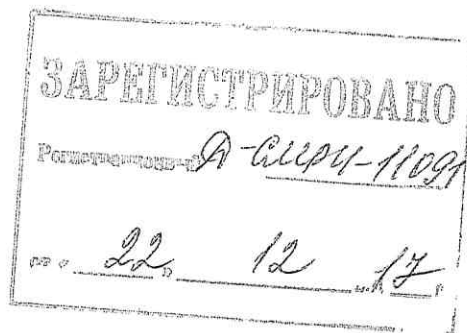 ЗАРЕГИСТРИРОВАНО
Регистрационный Д-СМРИ-11091
от « 22 » 12 17 г